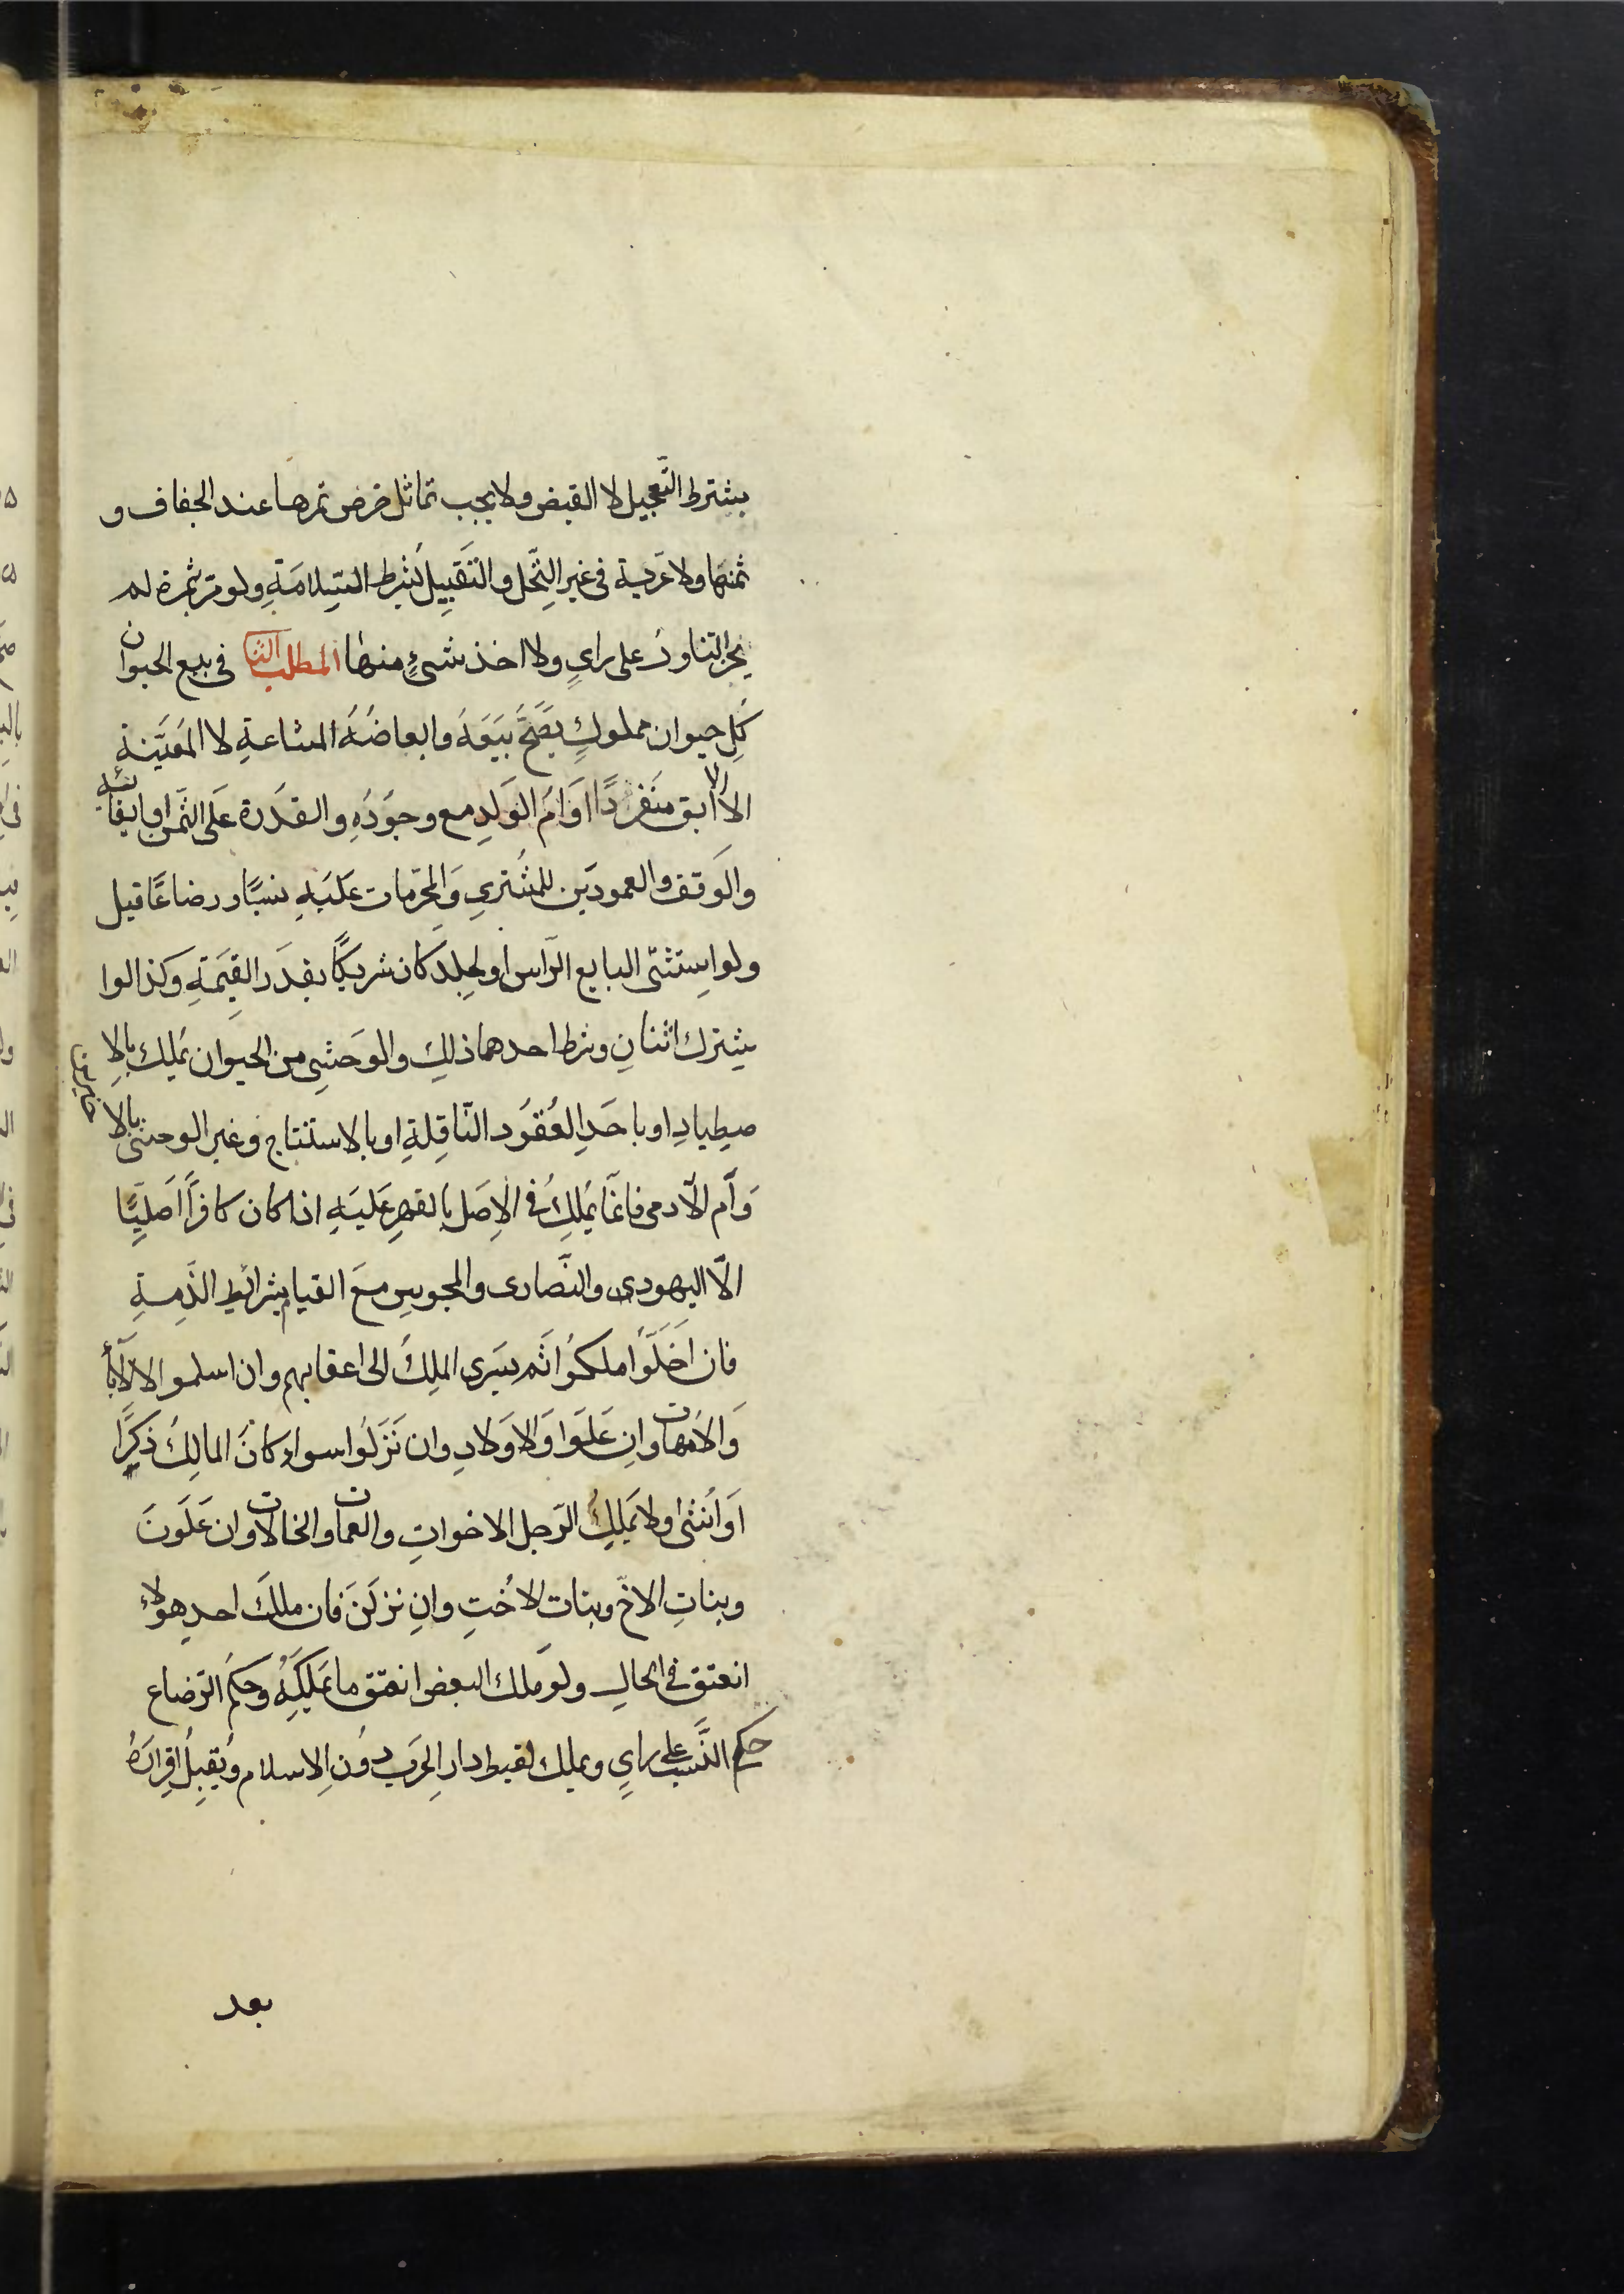 يشترط التّعجيل لا القبض ولا يجب تماثل خرص تمرها عند الجفاف و
ثمنها ولا عَريّة فى غير النّخل والتّقبيل بشرط السّلامةِ ولو مرّ بثمرة لم
يجز التناول على راىٍ ولا اخذ شىءٍ منها المطلب الثانى فى بيع الحيوان
كلّ حيوان مملوكٍ يصحّ بيعه وابعاضُهُ المشاعةِ لا المعيّنةِ
الا الابق منفردًا او ام الولدِ مع وجودهِ والقدرة على الثّمن او ايفائه
والوقف والعمودين للمشترىِ والمحرّمات عليهِ نسبًا و رضاعًا قيل
ولو استثنى البايع الرّاس او الجلد كان شريكًا بقدر القيمةِ وكذا لوا
شترك اثنانِ وشرط احدهما ذلك والوحشىِ من الحيوان يملك بالاِ
صطيادِ او باحدِ العُقُود النّاقلةِ او بالاستنتاج وغير الوحشى بالا
خيرين
وامّ الآدمى فانّما يملكُ فى الاصل بالقهرِ عليهِ اذا كان كافرًا اصليًّا
الّا اليهودى والنّصارى والمجوسِ مع القيام بشرائط الذّمةِ
فان اخلّوا ملكُوا ثم يسرى الملكُ الى اعقابهم وان اسلموا الا الآباء
والامّهات وان علوا والاولادِ وان نَزَلُوا سواء كان المالِكُ ذكرًا
او اُنثى ولا يملكُ الرّجل الاخواتِ والعمات والخالات وان علونَ
وبناتِ الاخ وبنات الاُختِ وانِ نزلنَ فان ملك احد هؤلاء
انعتق فى الحالِ ولو ملك البعض انعتق ما يملكهُ وحكم الرّضاع
حكم النّسب على راىٍ ويملك لقيط دار الحرب دُونَ الاسلام ويُقبلُ اقرارهُ
بعد